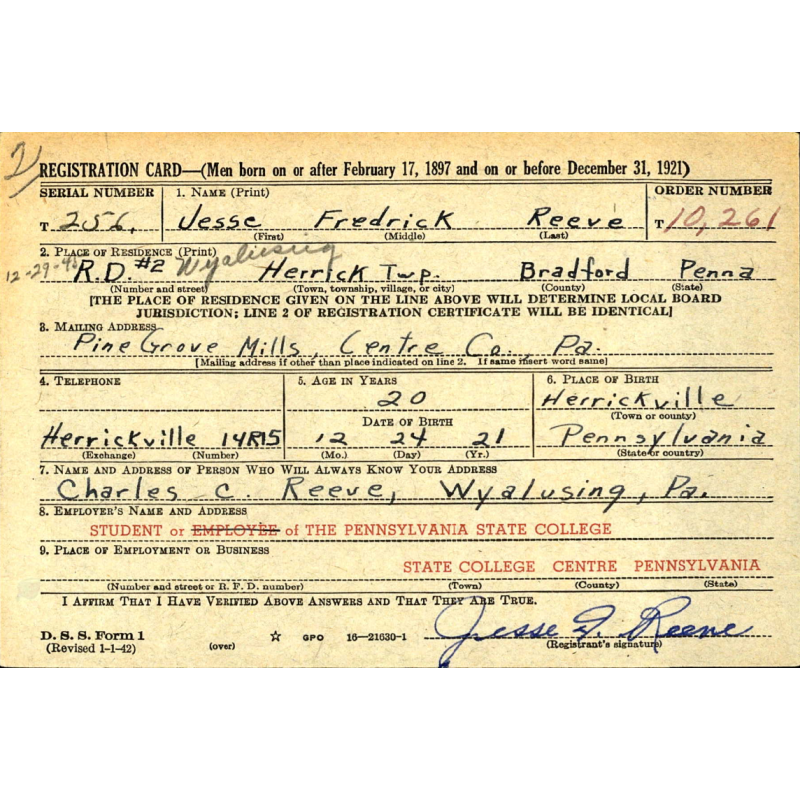 2/
REGISTRATION CARD—(Men born on or after February 17, 1897 and on or before December 31, 1921)
SERIAL NUMBER 1. NAME (Print) ORDER NUMBER
T 256. Jesse Fredrick Reeve T 10,261
(First) (Middle) (Last)
2. PLACE OF RESIDENCE (Print)
12-29-45 R.D. #2 Wyalusing Herrick Twp. Bradford Penna
(Number and street) (Town, township, village, or city) (County) (State)
[THE PLACE OF RESIDENCE GIVEN ON THE LINE ABOVE WILL DETERMINE LOCAL BOARD
JURISDICTION; LINE 2 OF REGISTRATION CERTIFICATE WILL BE IDENTICAL]
3. MAILING ADDRESS
Pine Grove Mills, Centre Co., Pa.
[Mailing address if other than place indicated on line 2. If same insert word same]
4. TELEPHONE 5. AGE IN YEARS 6. PLACE OF BIRTH
20 Herrickville
DATE OF BIRTH (Town or county)
Herrickville 14R15 12 24 21 Pennsylvania
(Exchange) (Number) (Mo.) (Day) (Yr.) (State or country)
7. NAME AND ADDRESS OF PERSON WHO WILL ALWAYS KNOW YOUR ADDRESS
Charles C. Reeve, Wyalusing, Pa.
8. EMPLOYER'S NAME AND ADDRESS
STUDENT or EMPLOYEE of THE PENNSYLVANIA STATE COLLEGE
9. PLACE OF EMPLOYMENT OR BUSINESS
STATE COLLEGE CENTRE PENNSYLVANIA
(Number and street or R. F. D. number) (Town) (County) (State)
I AFFIRM THAT I HAVE VERIFIED ABOVE ANSWERS AND THAT THEY ARE TRUE.
Jesse F. Reeve
D. S. S. Form 1 ☆ GPO 16—21630-1 (Registrant's signature)
(Revised 1-1-42) (over)